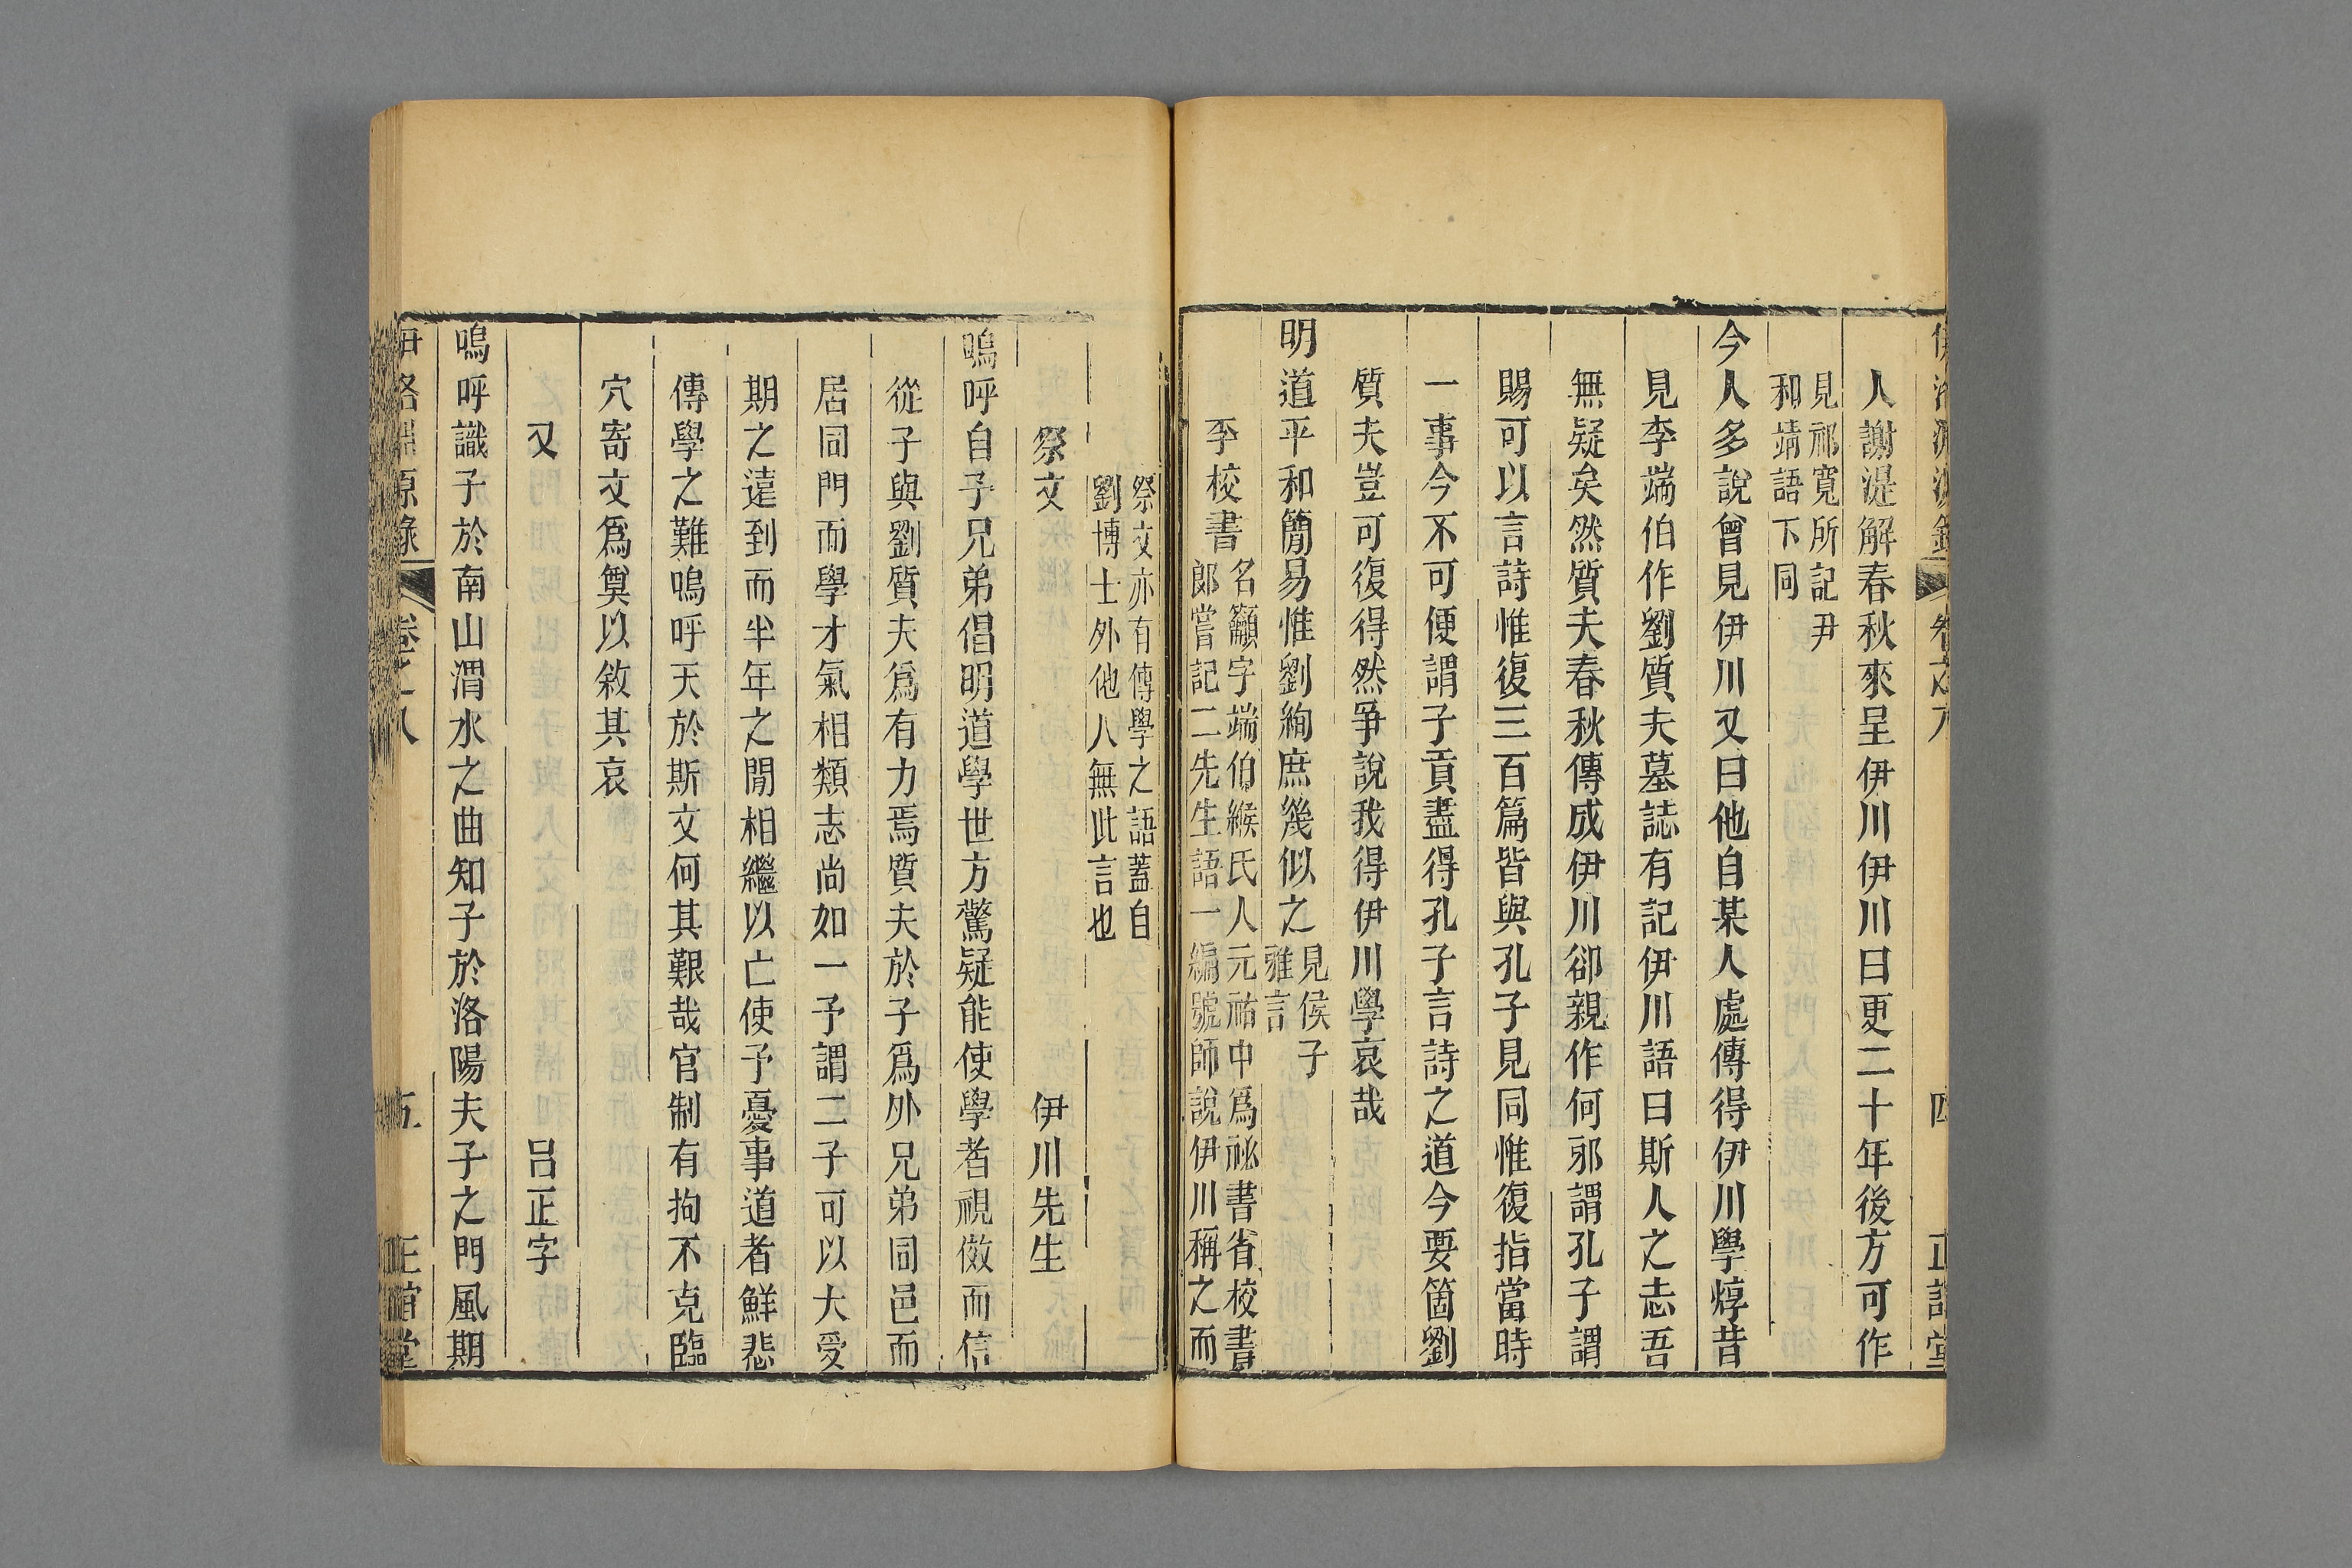 人謝湜解春秋來呈伊川伊川曰更二十年後方可作
見祁寬所記尹
和靖語下同
今人多說曾見伊川又曰他自某人處傳得伊川學焞昔
見李端伯作劉質夫墓誌有記伊川語曰斯人之志吾
無疑矣然質夫春秋傳成伊川卻親作何邪謂孔子謂
賜可以言詩惟復三百篇皆與孔子見同惟復指當時
一事今不可便謂子貢盡得孔子言詩之道今要箇劉
質夫豈可復得然爭說我得伊川學哀哉
明道平和簡易惟劉絢庶幾似之見侯子雅言
李校書名籲字端伯緱氏人元祐中爲祕書省校書
郞嘗記二先生語一編號師說伊川稱之而
祭文亦有傳學之語蓋自
劉博士外他人無此言也
祭文 伊川先生
嗚呼自予兄弟倡明道學世方驚疑能使學者視傚而信
從子與劉質夫爲有力焉質夫於子爲外兄弟同邑而
居同門而學才氣相類志尚如一予謂二子可以大受
期之遠到而半年之閒相繼以亡使予憂事道者鮮悲
傳學之難嗚呼天於斯文何其艱哉官制有拘不克臨
穴寄文爲奠以敘其哀
又 呂正字
嗚呼識子於南山渭水之曲知子於洛陽夫子之門風期
伊洛淵源錄 卷之八 五 正誼堂